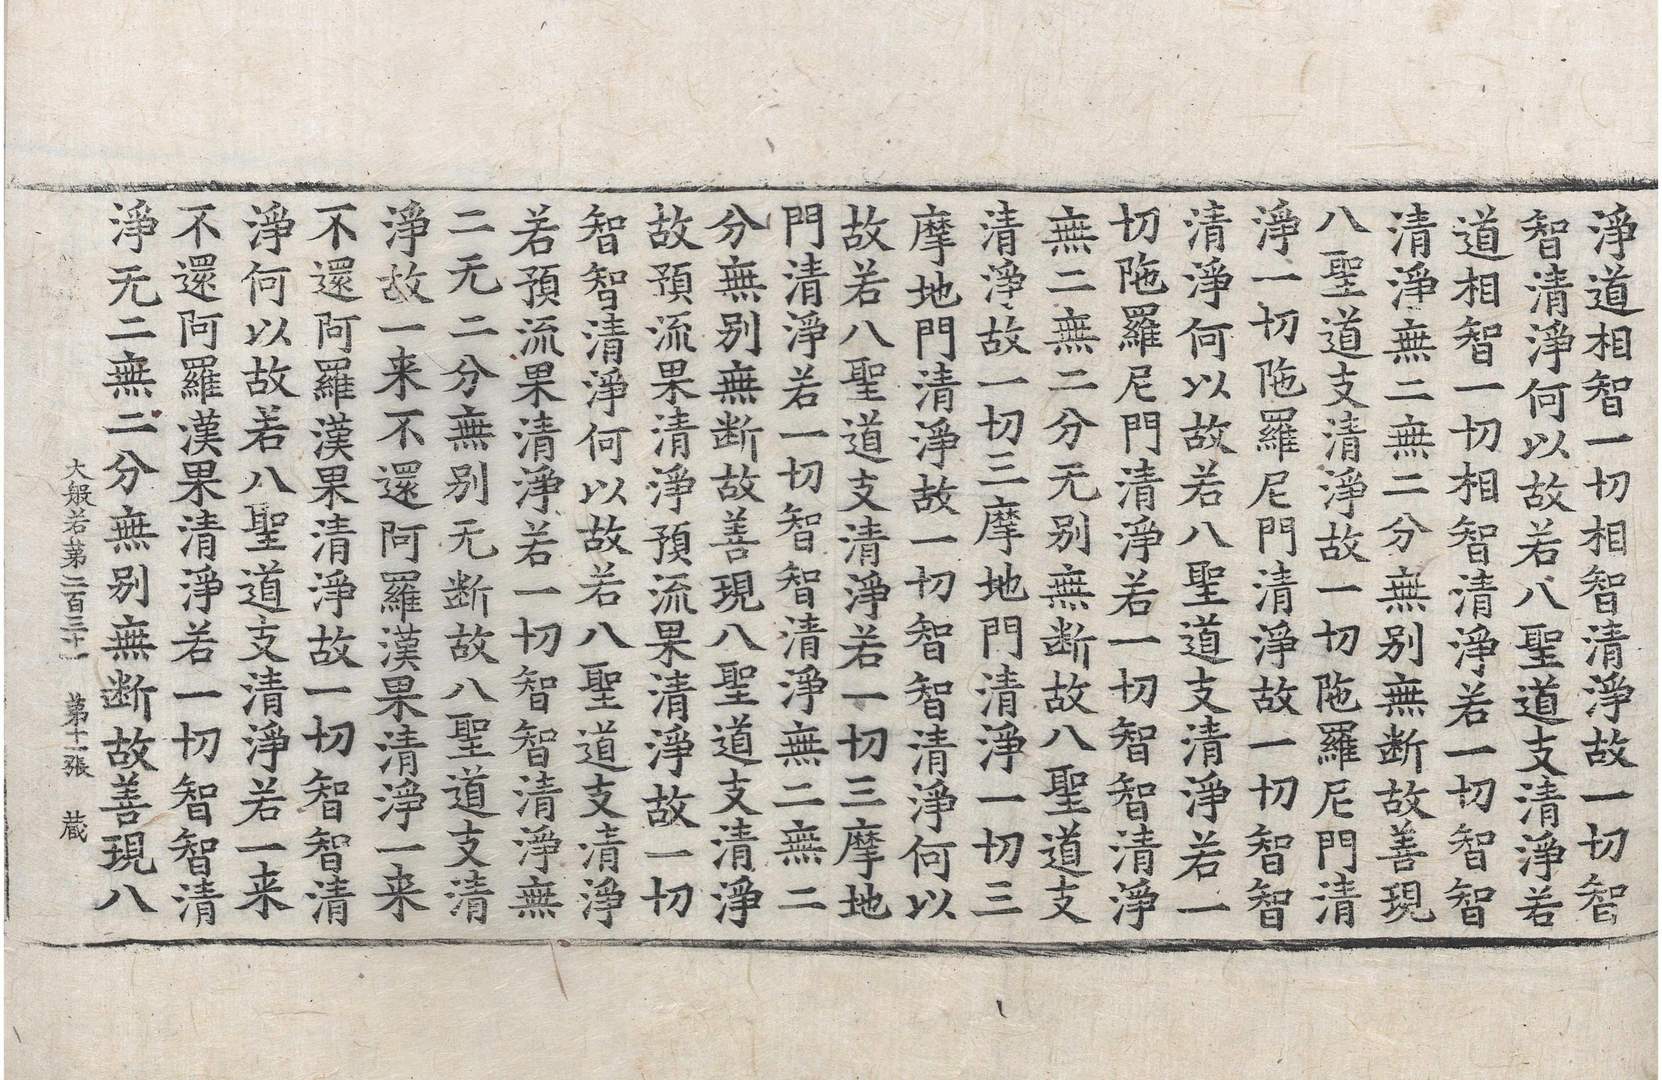 淨道相智一切相智清淨故一切智
智清淨何以故若八聖道支清淨若
道相智一切相智清淨若一切智智
清淨無二無二分無別無斷故善現
八聖道支清淨故一切陁羅尼門清
淨一切陁羅尼門清淨故一切智智
清淨何以故若八聖道支清淨若一
切陁羅尼門清淨若一切智智清淨
無二無二分无别無断故八聖道支
清淨故一切三摩地門清淨一切三
摩地門清淨故一切智智清淨何以
故若八聖道支清淨若一切三摩地
門清淨若一切智智清淨無二無二
分無别無断故善現八聖道支清淨
故預流果清淨預流果清淨故一切
智智清淨何以故若八聖道支清淨
若預流果清淨若一切智智清淨無
二无二分無别无断故八聖道支清
淨故一来不還阿羅漢果清淨一来
不還阿羅漢果清淨故一切智智清
淨何以故若八聖道支清淨若一来
不還阿羅漢果清淨若一切智智清
淨无二無二分無别無断故善現八
大般若第二百三十一 第十一張 蔵